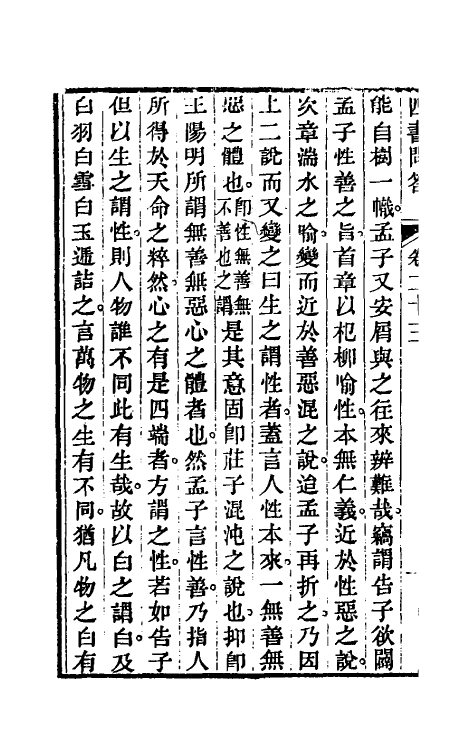 四書問答 卷二十三
能自樹一幟。孟子又安屑與之往來辨難哉。竊謂告子欲闢
孟子性善之旨。首章以杞柳喻性。本無仁義。近於性惡之說。
次章湍水之喻。變而近於善惡混之說。迨孟子再折之。乃因
上二說而又變之曰生之謂性者。蓋言人性本來一無善無
惡之體也。卽性無善無不善也之謂是其意固卽莊子混沌之說也。抑卽
王陽明所謂無善無惡心之體者也。然孟子言性善。乃指人
所得於天命之粹然。心之有是四端者。方謂之性。若如告子
但以生之謂性。則人物誰不同此有生哉。故以白之謂白。及
白羽白雪白玉遞詰之。言萬物之生有不同。猶凡物之白有